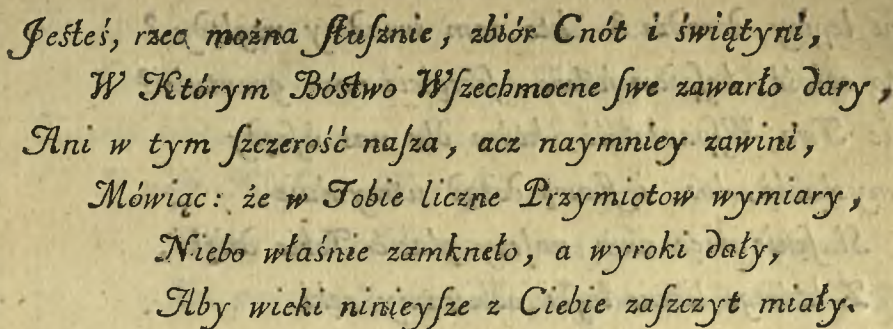 Jesteś, rzec można ſłuſznie, zbiór Cnót i świątyni,
W Którym Bóstwo Wſzechmocne ſwe zawarło dary,
Ani w tym ſzczerość naſza, acz naymniey zawini,
Mówiąc: że w Tobie liczne Przymiotow wymiary,
Niebo właśnie zamkneło, a wyroki dały,
Aby wieki ninieyſze z Ciebie zaſzczyt miały.